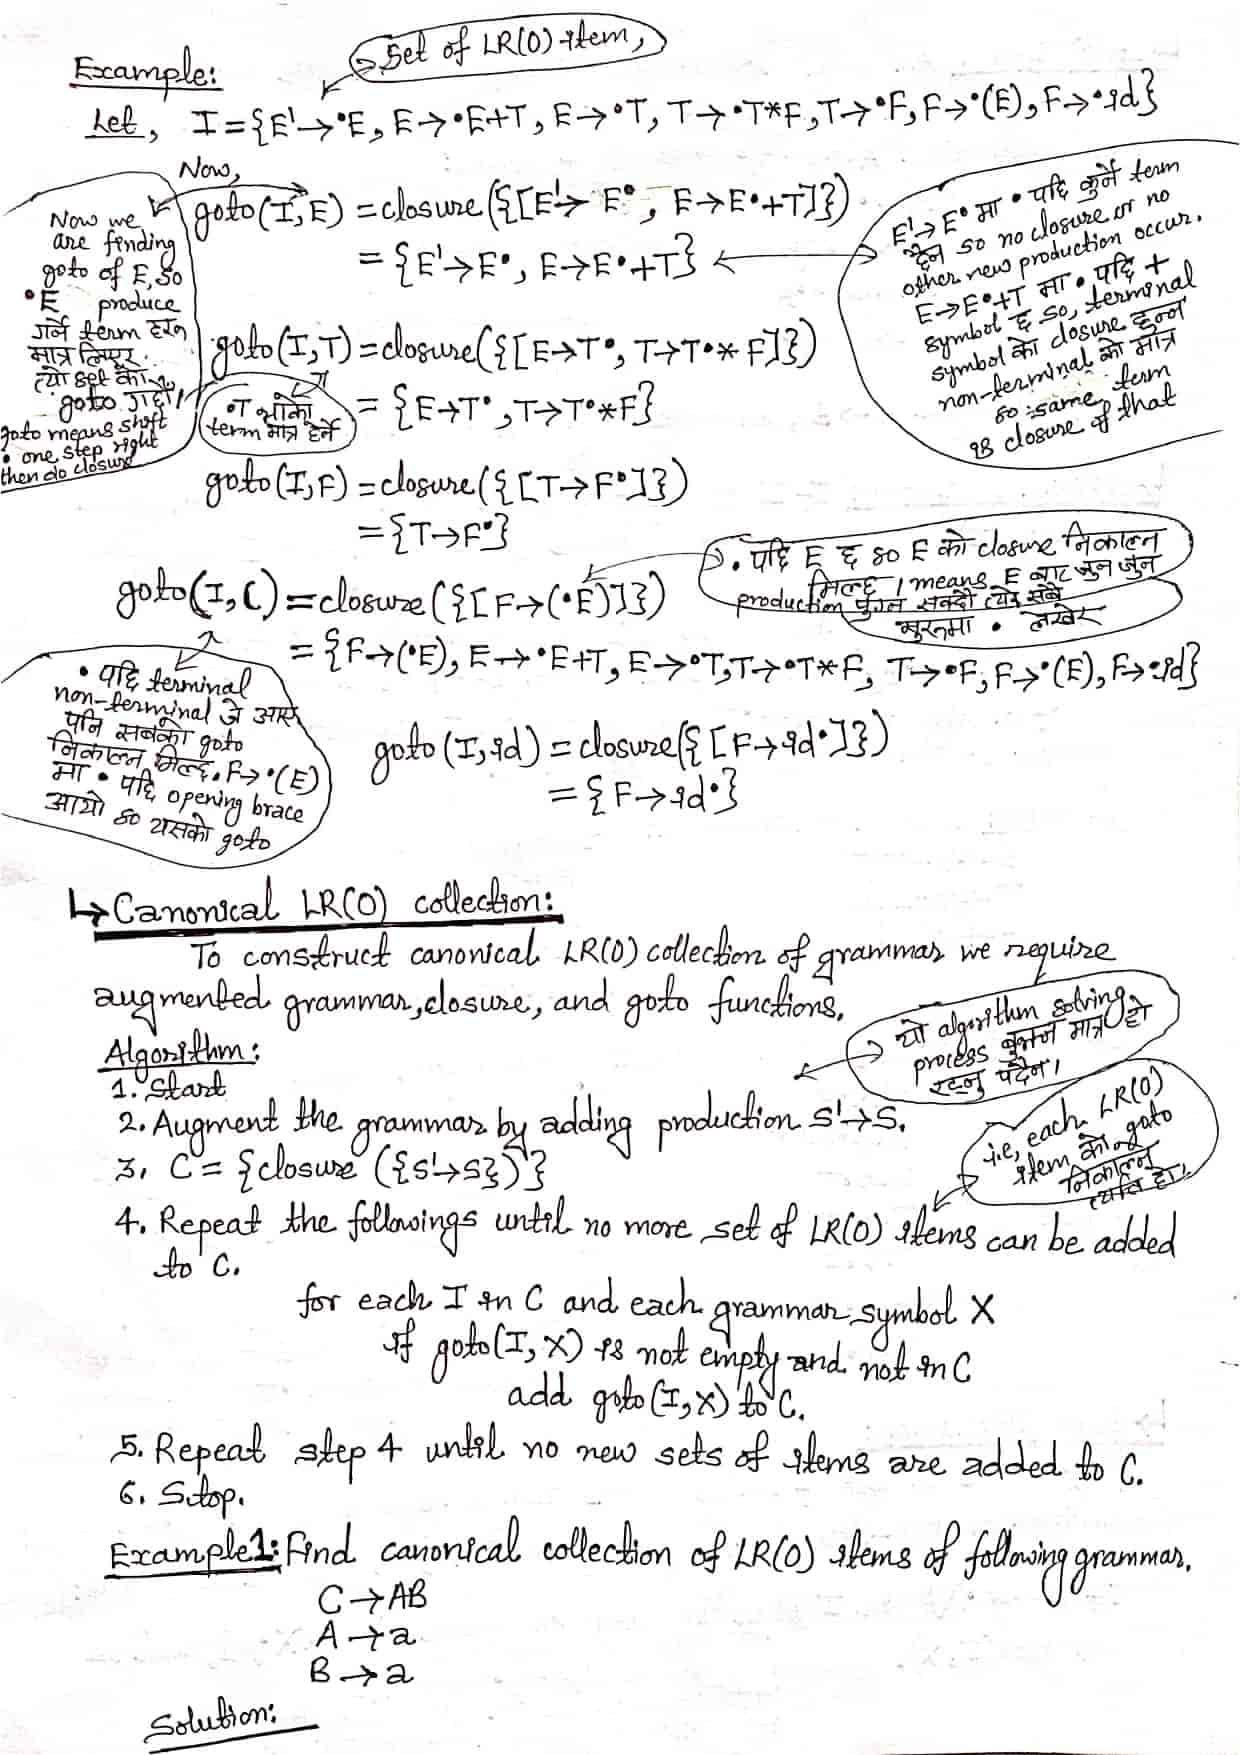 Set of LR(0) item,
Example:
Let, I = {E'→•E, E→•E+T, E→•T, T→•T*F, T→•F, F→•(E), F→•id}
Now,
goto(I,E) = closure({[E'→E•, E→E•+T]})
= {E'→E•, E→E•+T}
Now we
are finding
goto of E, so
•E produce
गर्ने term हरू
मात्र लिएर
त्यो set को
goto गर्छौ।
goto means shift
• one step right
then do closure
E'→E• मा • पछि कुनै term
छैन so no closure or no
other new production occur.
E→E•+T मा • पछि +
symbol छ so, terminal
symbol को closure हुन्न
non-terminal को मात्र
so same term
is closure of that
goto(I,T) = closure({[E→T•, T→T•*F]})
= {E→T•, T→T•*F}
•T भएको
term मात्र हेर्ने
goto(I,F) = closure({[T→F•]})
= {T→F•}
• पछि E छ so E को closure निकाल्न
मिल्छ। means E बाट जुन जुन
production पुग्न सक्दो त्यो सबै
सुरुमा • लखेर
goto(I,() = closure({[F→(•E)]})
= {F→(•E), E→•E+T, E→•T, T→•T*F, T→•F, F→•(E), F→•id}
• पछि terminal
non-terminal जे आए
पनि सबको goto
निकाल्न मिल्छ. F→•(E)
मा • पछि opening brace
आयो so यसको goto
goto(I,id) = closure({[F→id•]})
= {F→id•}
↳ Canonical LR(0) collection:
To construct canonical LR(0) collection of grammar we require
augmented grammar, closure, and goto functions.
यो algorithm solving
process बुझ्न मात्र हो
रट्नु पर्दैन।
Algorithm:
1. Start
2. Augment the grammar by adding production S'→S.
3. C = {closure ({S'→S})}
i.e, each LR(0)
item को goto
निकाल्न
त्यति हो।
4. Repeat the followings until no more set of LR(0) items can be added
to C.
for each I in C and each grammar symbol X
if goto(I,X) is not empty and not in C
add goto(I,X) to C.
5. Repeat step 4 until no new sets of items are added to C.
6. Stop.
Example1: Find canonical collection of LR(0) items of following grammar.
C→AB
A→a
B→a
Solution: